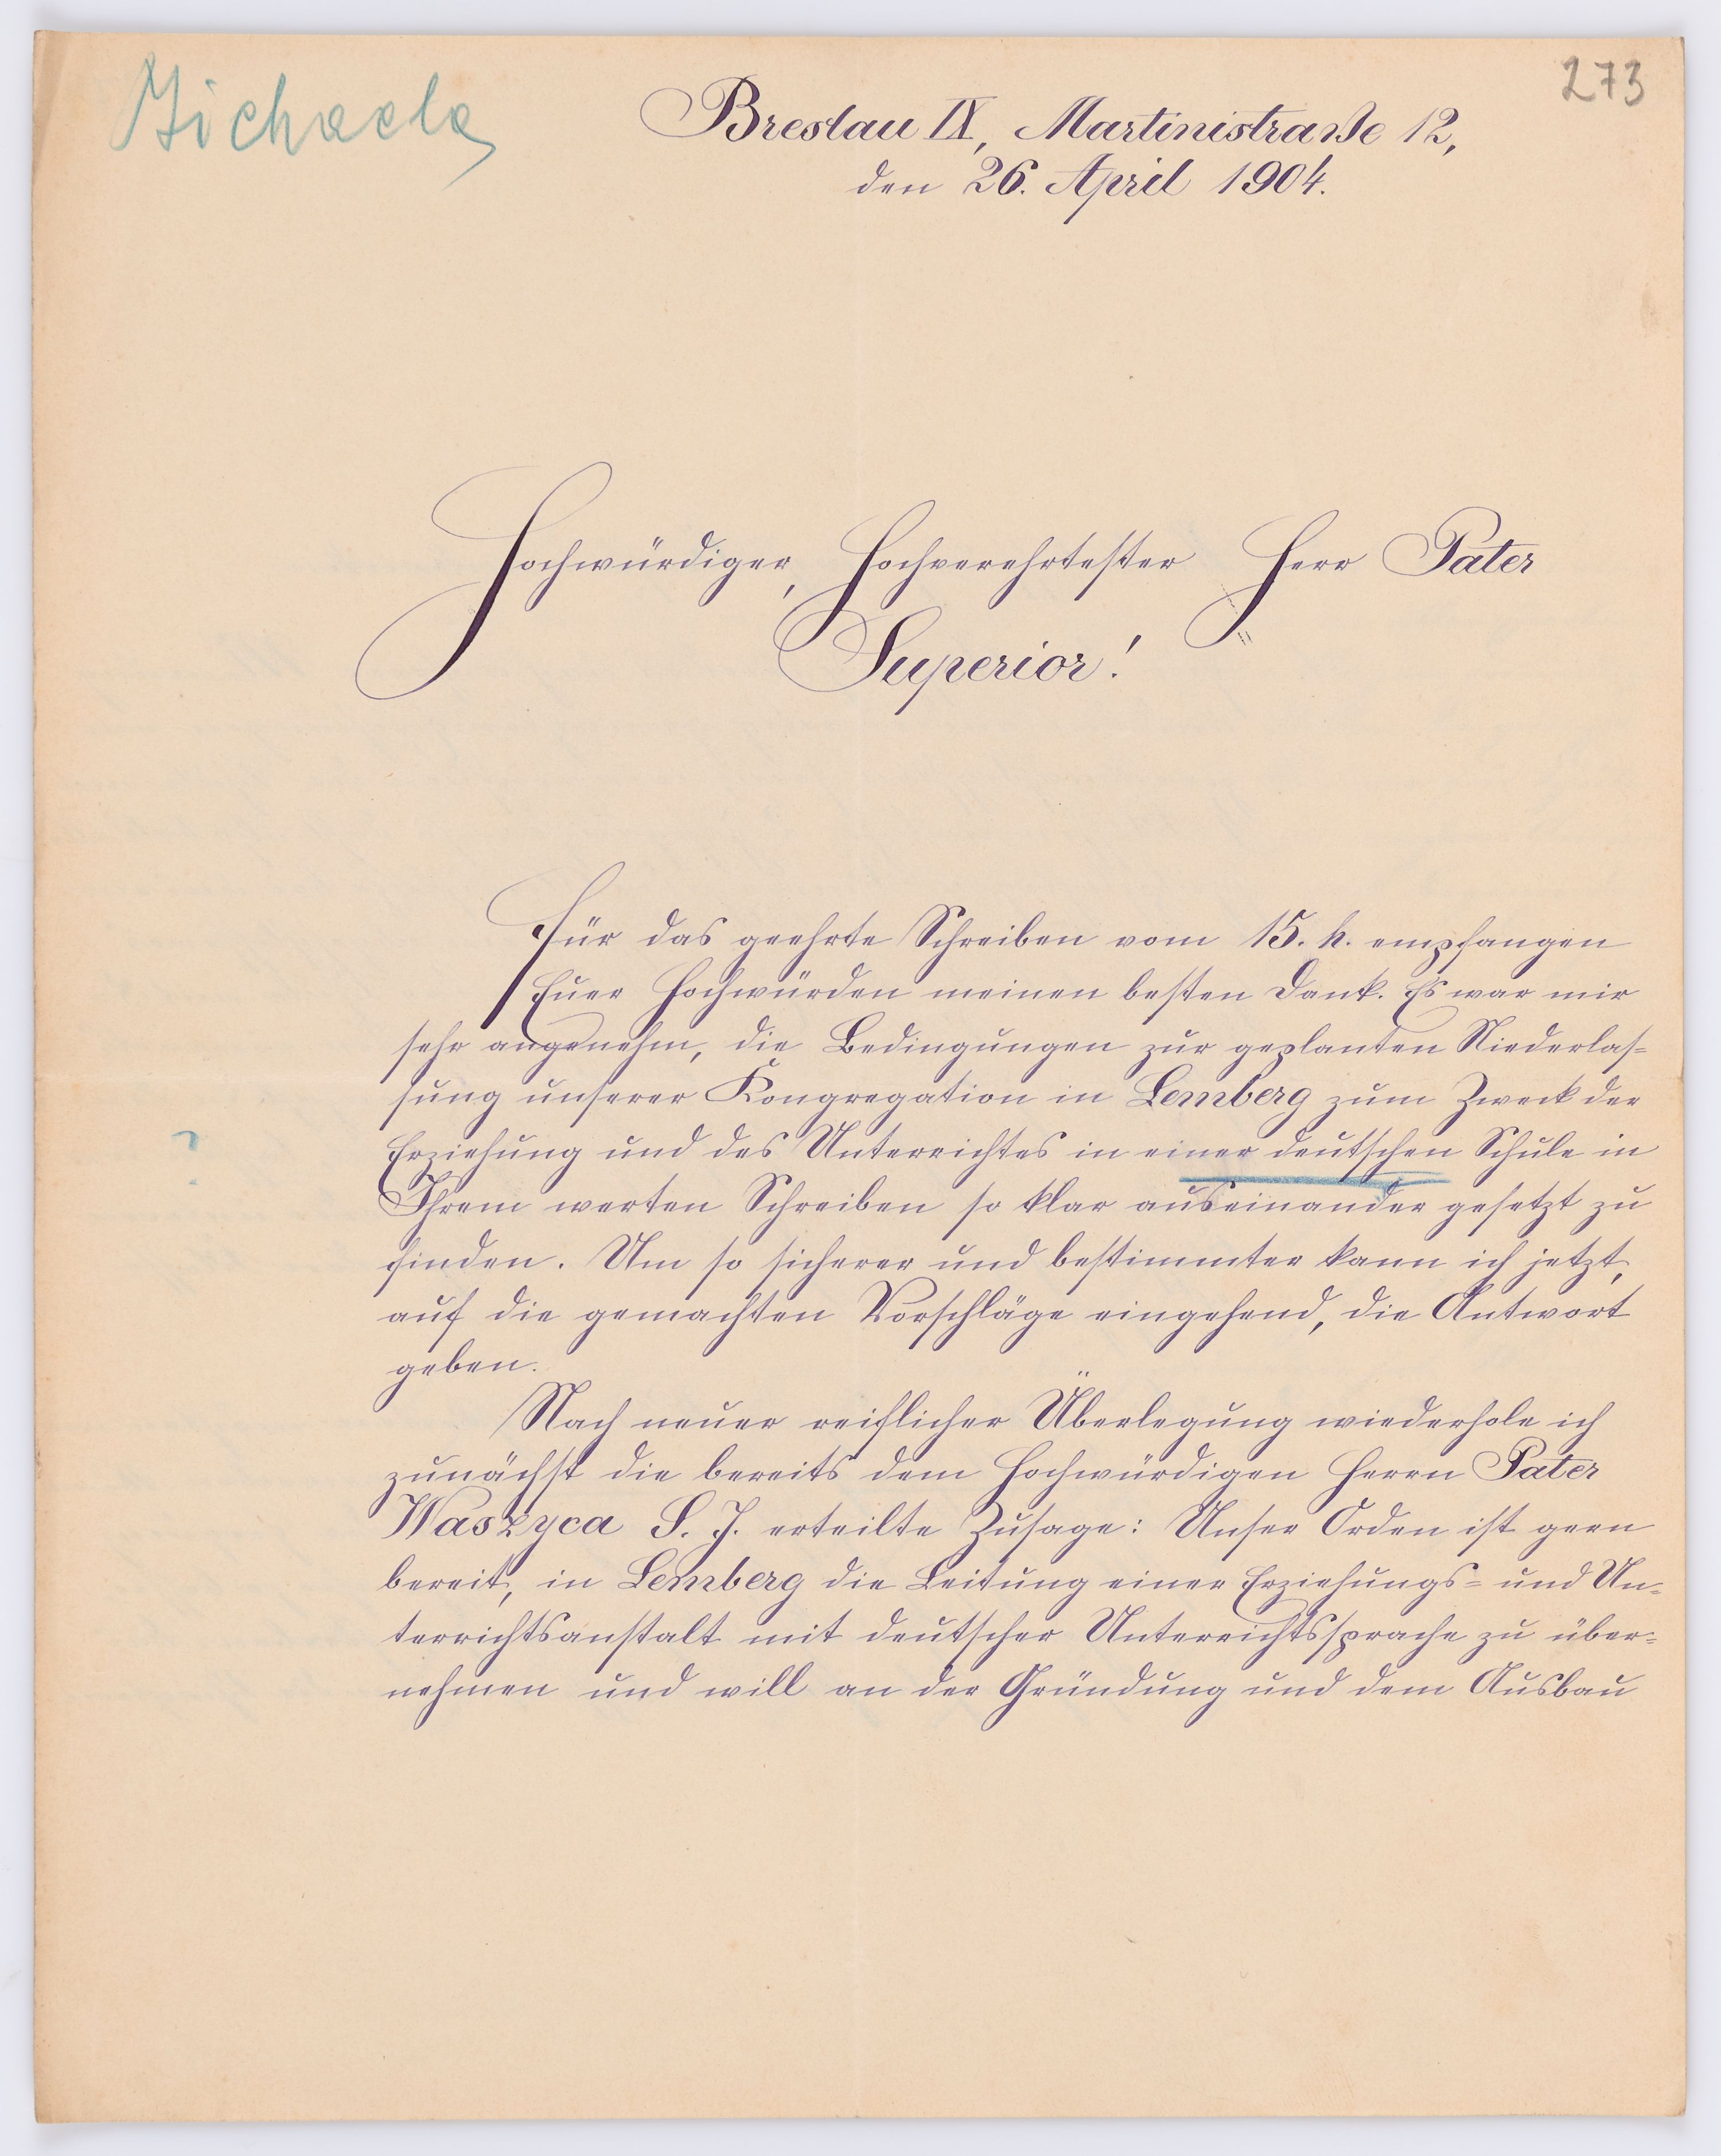 Michaela
273
Breslau IX, Martinistraße 12,
den 26. April 1904.
Hochwürdiger, Hochverehrtester Herr Pater
Superior!
Für das geehrte Schreiben vom 15. h. empfangen
Euer Hochwürden meinen besten Dank. Es war mir
sehr angenehm, die Bedingungen zur geplanten Niederlas=
sung unserer Kongregation in Lemberg zum Zweck der
Erziehung und des Unterrichtes in einer deutschen Schule in
?
Ihrem werten Schreiben so klar auseinander gesetzt zu
finden. Um so sicherer und bestimmter kann ich jetzt,
auf die gemachten Vorschläge eingehend, die Antwort
geben.
Nach neuer reiflicher Überlegung wiederhole ich
zunächst die bereits dem Hochwürdigen Herrn Pater
Waszyca S. J. erteilte Zusage: Unser Orden ist gern
bereit, in Lemberg die Leitung einer Erziehungs= und Un=
terrichtsanstalt mit deutscher Unterrichtssprache zu über=
nehmen und will an der Gründung und dem Ausbau